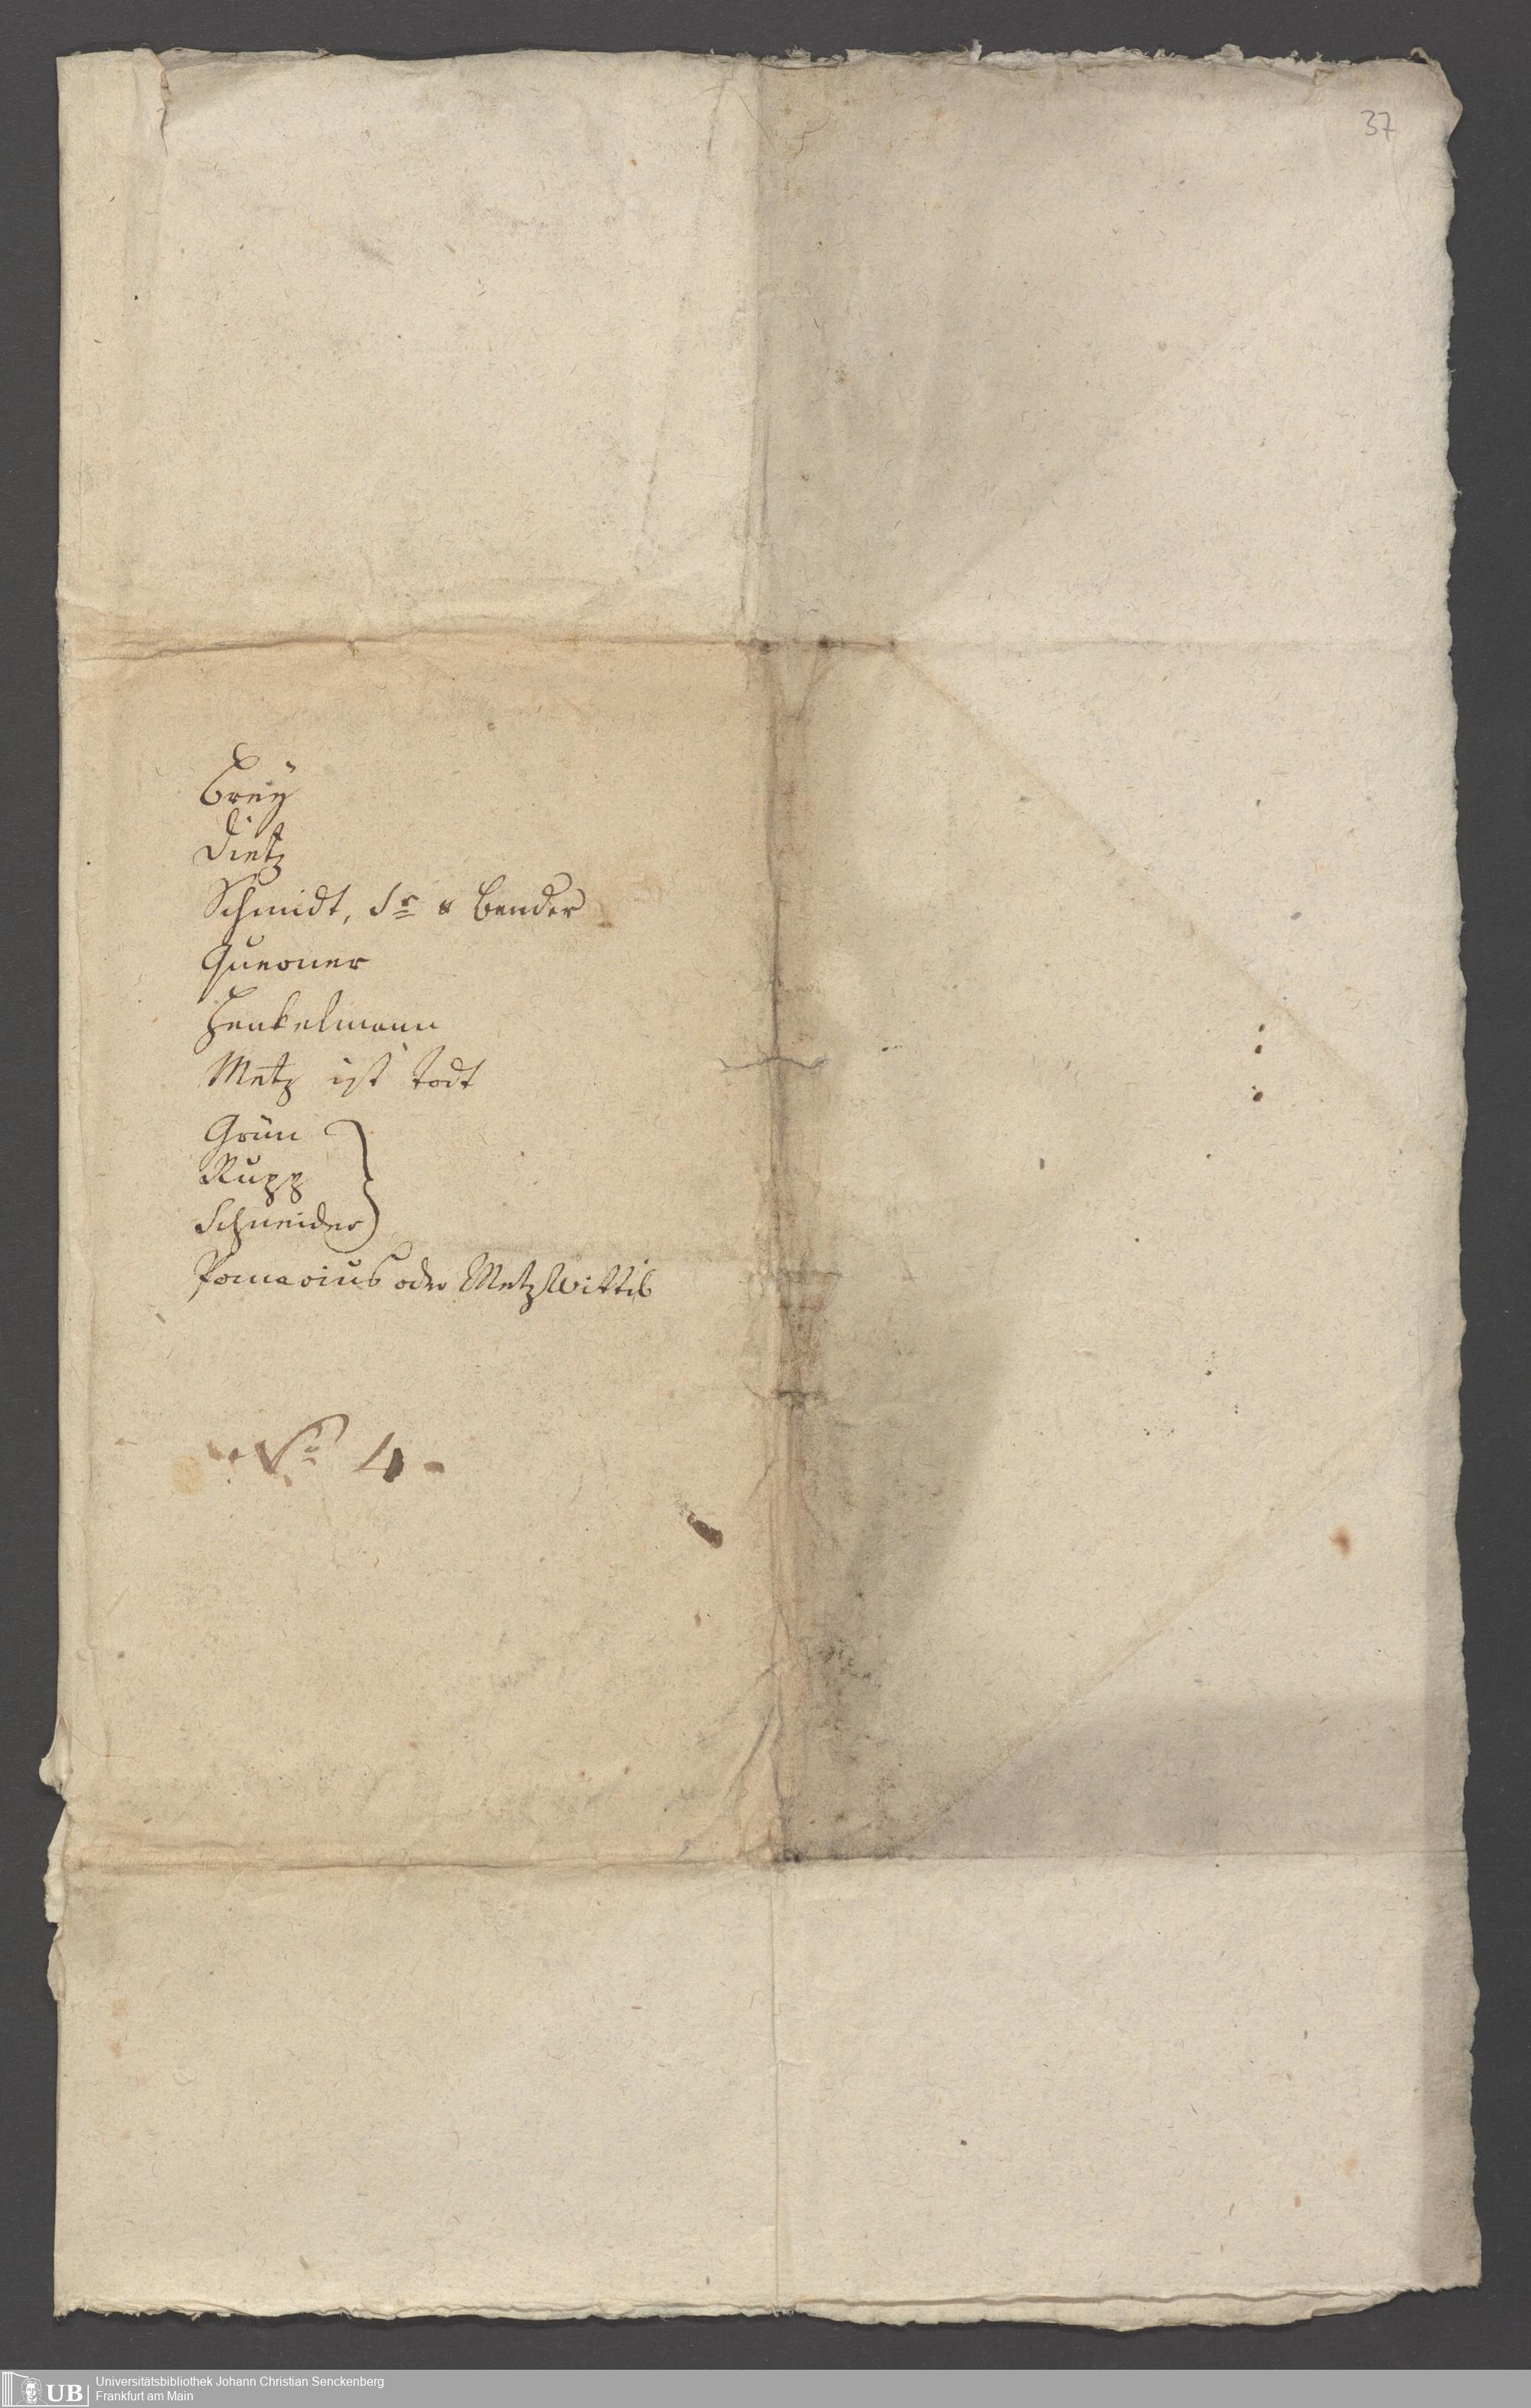 37
Breÿ
Dietz
Schmidt, Sr & Bender
Henkelmann
Metz ist todt
Grün
Rupp
Schneider
Pomarius oder Metz Wittib
No 4.
UB
Universitätsbibliothek Johann Christian Senckenberg
Frankfurt am Main